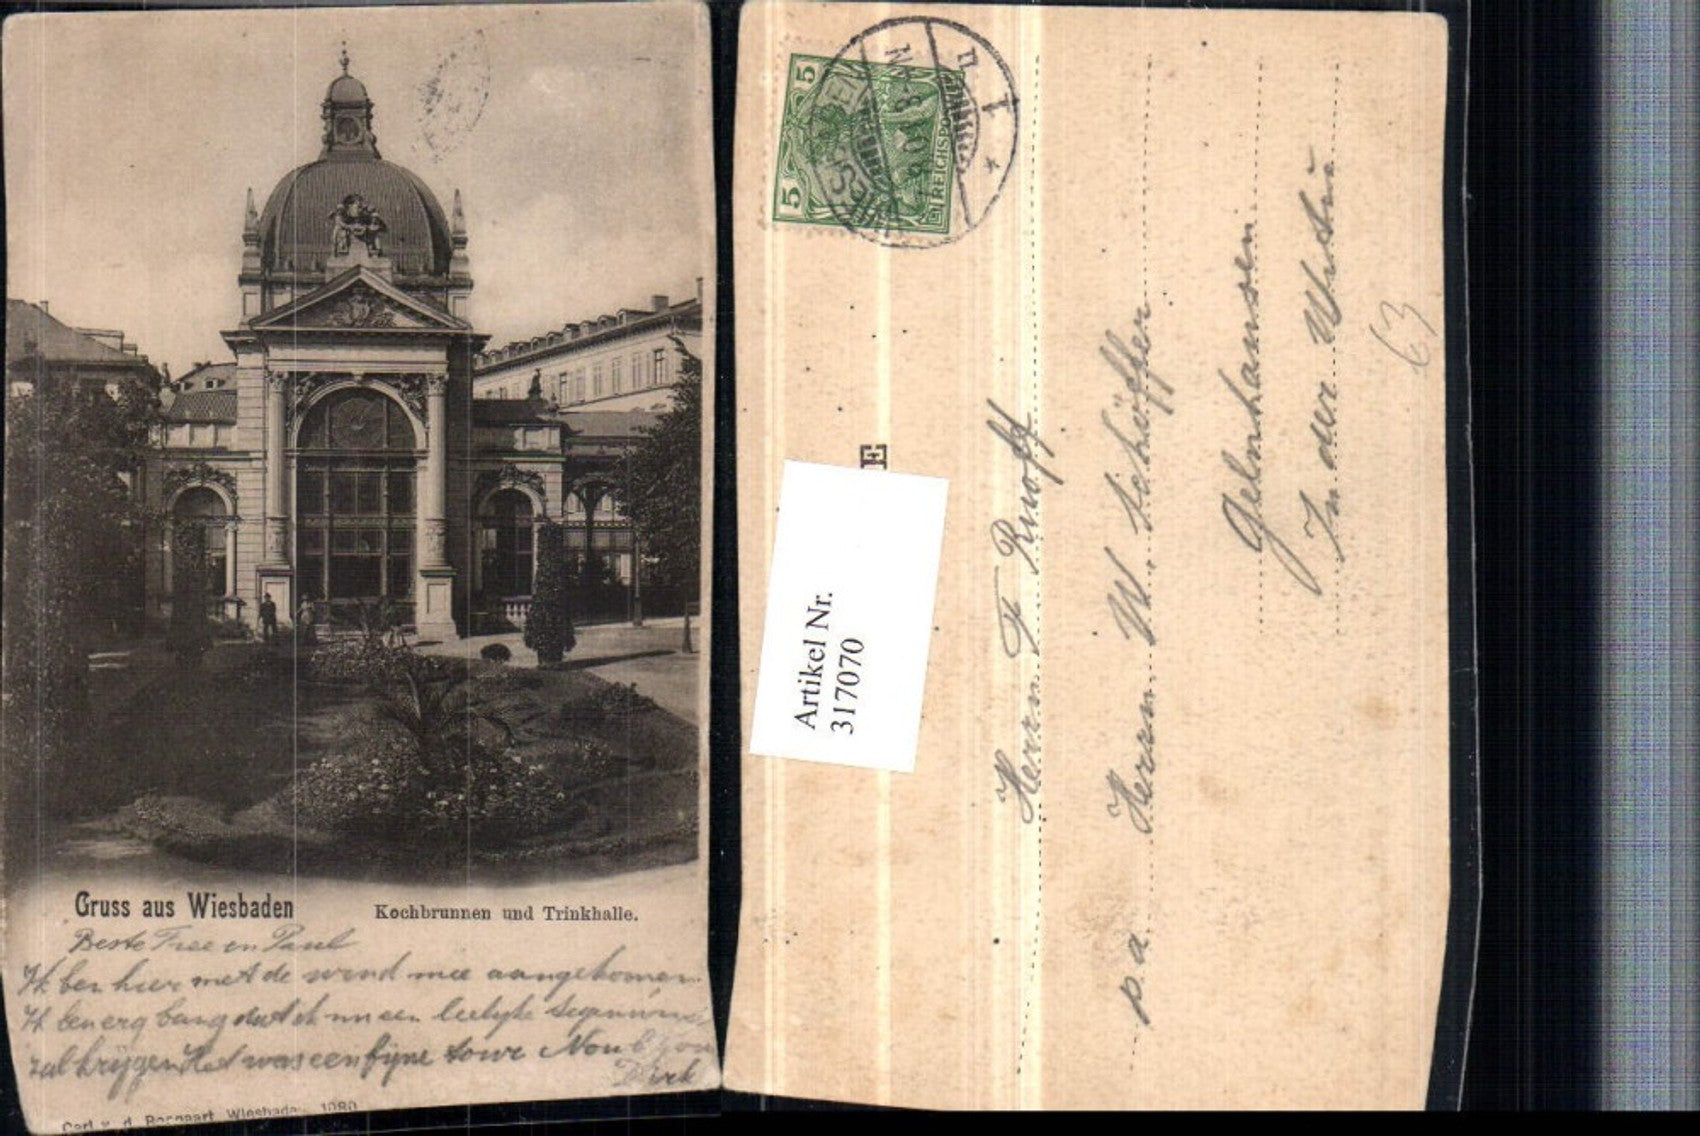 Gruss aus Wiesbaden
Kochbrunnen und Trinkhalle.
Beste Free en Paul
Ik ben hier met de wind mee aangekomen
Ik ben erg bang dat ik nu een leelyke
zal krijgen Het was een fijne towr
Dirk
Carl v. d. Boogaart, Wiesbaden 1080
5
5
REICHSPOST
Artikel Nr.
317070
Herrn F Ruoff
p. a. Herrn W. Schöffer
Gelnhausen
In der
63